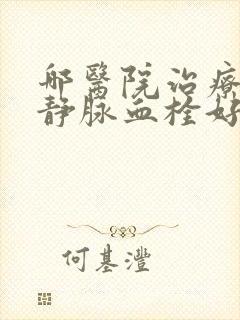 邮醫院治療
静脉血栓好
何基灃